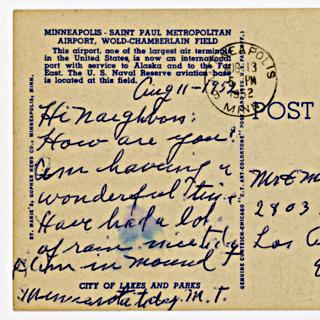 MINNEAPOLIS - SAINT PAUL METROPOLITAN
AIRPORT, WOLD-CHAMBERLAIN FIELD
This airport, one of the largest air terminals
in the United States, is now an international
port with service to Alaska and to the Far
East. The U. S. Naval Reserve aviation base
is located at this field.
Aug 11-1952
Hi Neighbors:
How are you?
Am having a
wonderful time
Have had a lot
of rain nice today
Am in mound
Minnesota today. M. T.
CITY OF LAKES AND PARKS
ST. MARIE'S GOPHER NEWS CO., MINNEAPOLIS, MINN.
GENUINE CURTEICH-CHICAGO "C.T. ART-COLORTONE" POST CARD
MINNEAPOLIS
13
5 PM
1952
MINN
POST
2803
Los